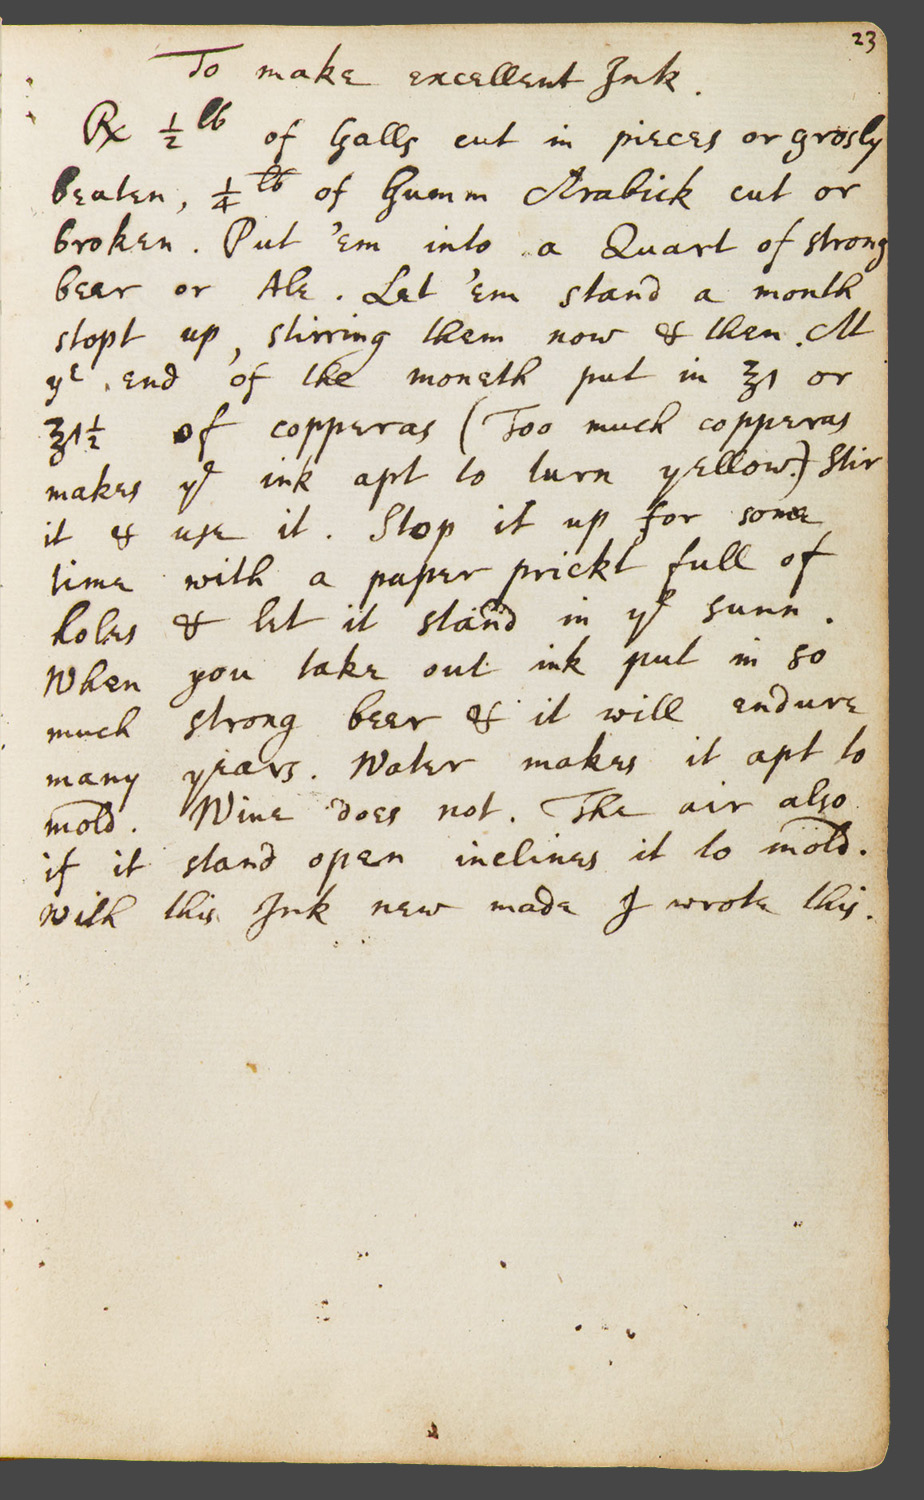 23
To make excellent Ink.
℞ ½ lb of Galls cut in pieces or grosly
beaten, ¼ lb of Gumm Arabick cut or
broken. Put 'em into a Quart of strong
beer or Ale. Let 'em stand a month
stopt up, stirring them now & then. At
yᵉ end of the moneth put in ℥1 or
℥1½ of copperas (Too much copperas
makes yᵉ ink apt to turn yellow.) Stir
it & use it. Stop it up for some
time with a paper prickt full of
holes & let it stand in yᵉ sunn.
When you take out ink put in so
much strong beer & it will endure
many years. Water makes it apt to
mold. Wine does not. The air also
if it stand open inclines it to mold.
With this Ink new made I wrote this.